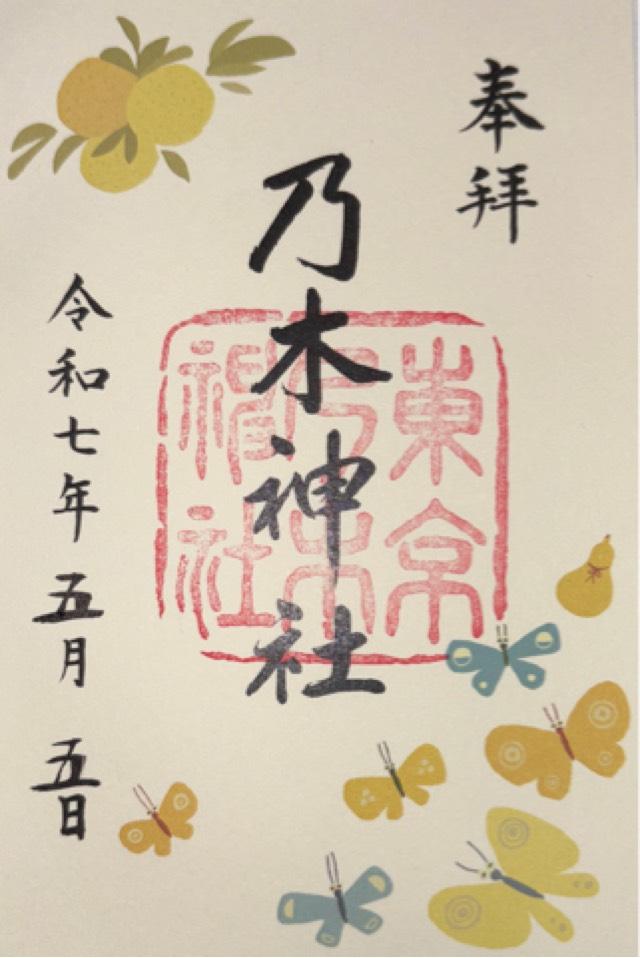 奉拝
乃木神社
東京
乃木
神社
令和七年五月五日